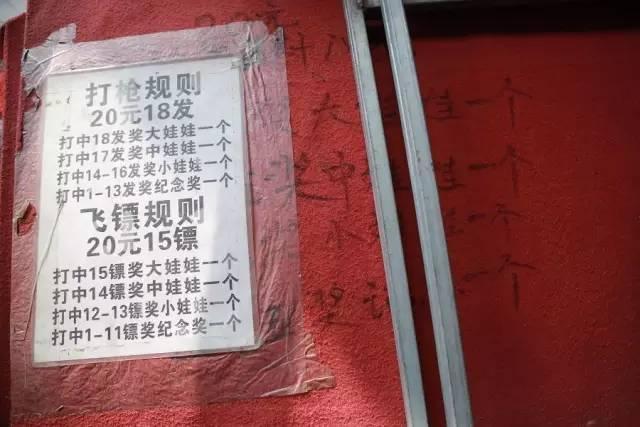 打枪规则
20元18发
打中18发奖大娃娃一个
打中17发奖中娃娃一个
打中14-16发奖小娃娃一个
打中1-13发奖纪念奖一个
飞镖规则
20元15镖
打中15镖奖大娃娃一个
打中14镖奖中娃娃一个
打中12-13镖奖小娃娃一个
打中1-11镖奖纪念奖一个
十八
大 一个
奖中 娃一个
小 一个
奖 一个